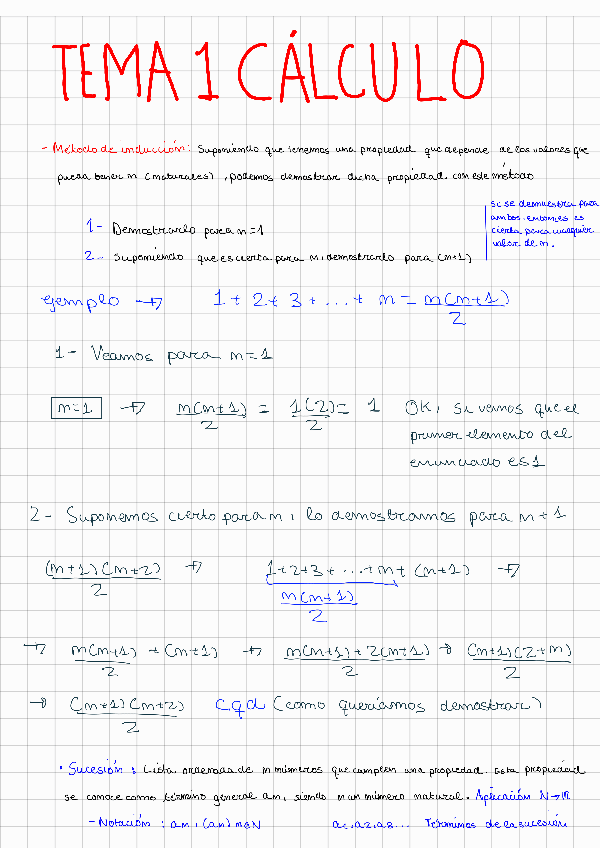 TEMA 1 CÁLCULO
- Método de inducción: Suponiendo que tenemos una propiedad que depende de los valores que
pueda tener n (naturales), podemos demostrar dicha propiedad con este método
si se demuestra para
ambos, entonces es
cierta para cualquier
valor de n.
1- Demostrarlo para n=1
2- Suponiendo que es cierta para n, demostrarlo para (n+1)
ejemplo → 1 + 2 + 3 + ... + n = n(n+1)/2
1- Veamos para n=1
n=1 → n(n+1)/2 = 1(2)/2 = 1 OK, si vemos que el
primer elemento del
enunciado es 1
2- Suponemos cierto para n, lo demostramos para n+1
(n+1)(n+2)/2 → 1+2+3+...+n+(n+1) →
n(n+1)/2
→ n(n+1)/2 + (n+1) → n(n+1)+2(n+1)/2 → (n+1)(2+n)/2
→ (n+1)(n+2)/2 cqd (como queríamos demostrar)
· Sucesión: Lista ordenada de n números que cumplen una propiedad. Esta propiedad
se conoce como término general an, siendo n un número natural. Aplicación N→R
- Notación: an, (an) n∈N a1, a2, a3... Términos de la sucesión